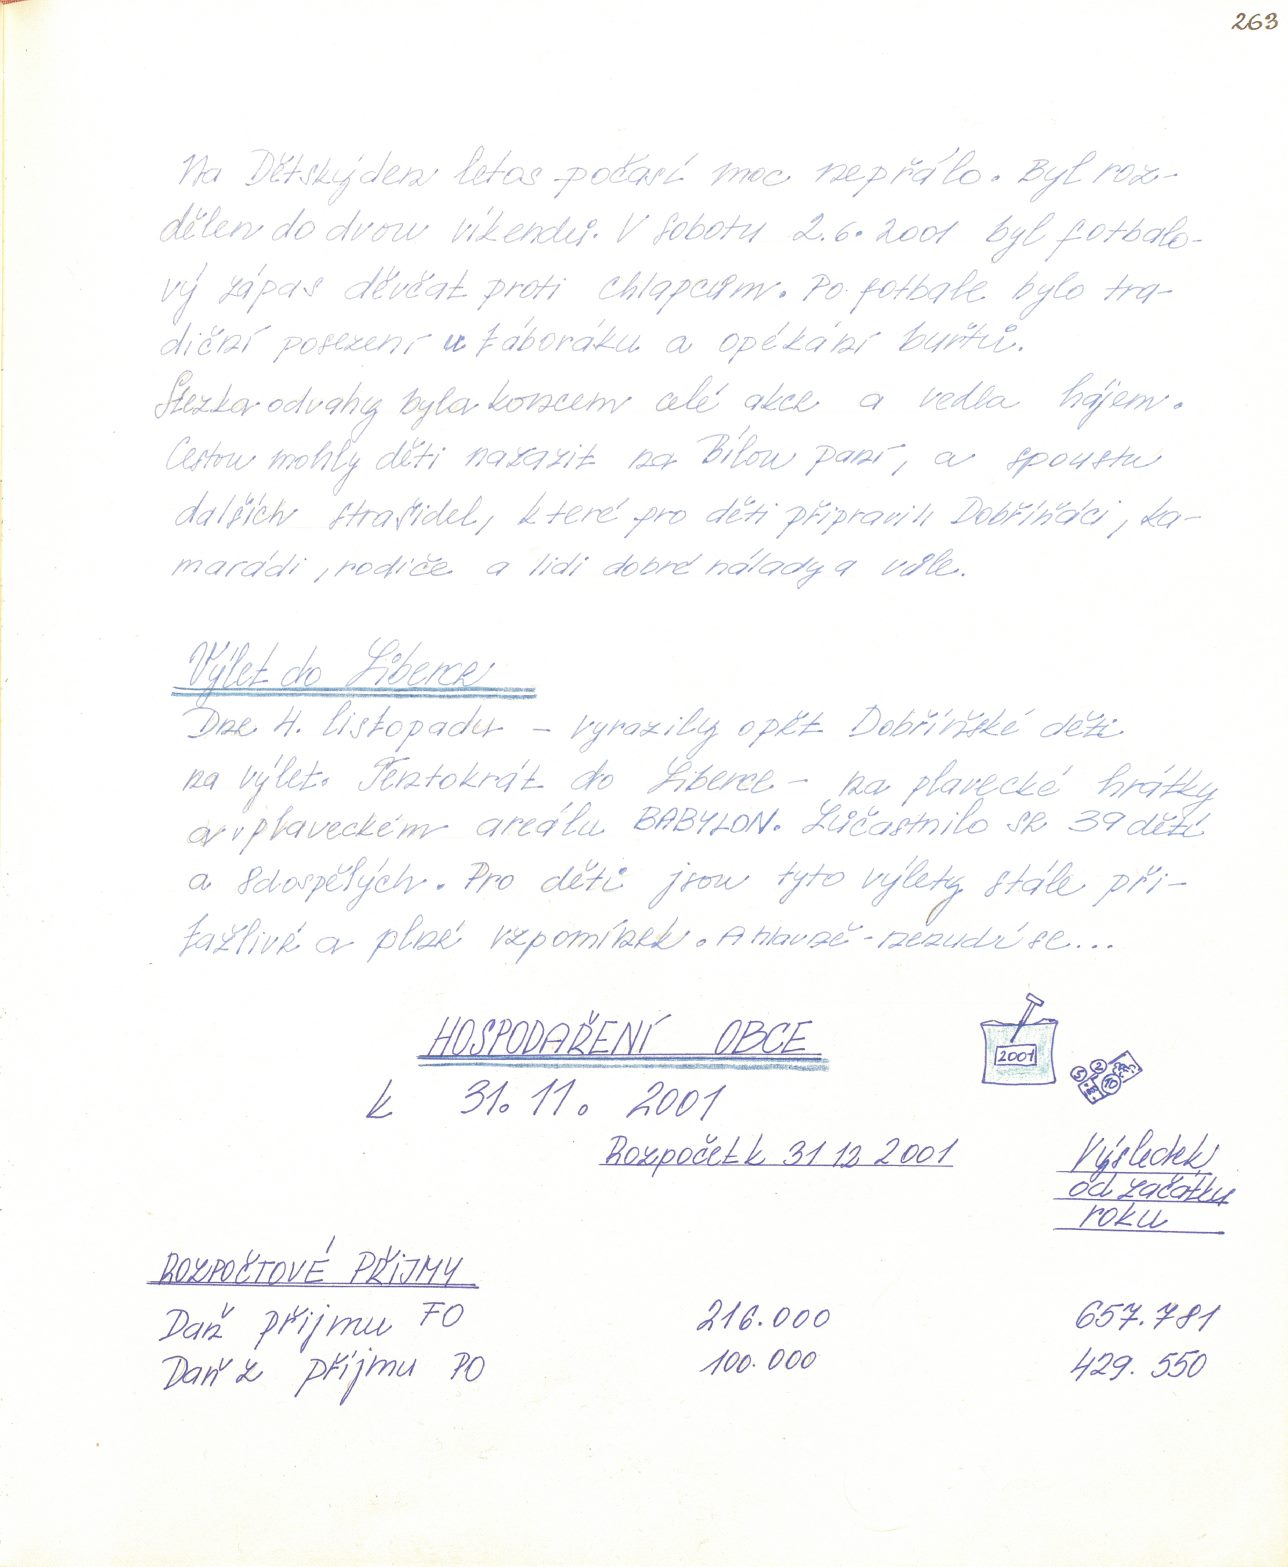 263
Na Dětský den letos počasí moc nepřálo. Byl roz-
dělen do dvou víkendů. V sobotu 2.6. 2001 byl fotbalo-
vý zápas děvčat proti chlapcům. Po fotbale bylo tra-
diční posezení u táboráku a opékání buřtů.
Stezka odvahy byla koncem celé akce a vedla hájem.
Cestou mohly děti narazit na Bílou paní, a spoustu
dalších strašidel, které pro děti připravili Dobříňáci, ka-
marádi, rodiče a lidi dobré nálady a vůle.
Výlet do Liberce
Dne 4. listopadu - vyrazily opět Dobříňské děti
na výlet. Tentokrát do Liberce - na plavecké hrátky
a v plaveckém areálu BABYLON. Zúčastnilo se 39 dětí
a 8 dospělých. Pro děti jsou tyto výlety stále při-
tažlivé a plné vzpomínek. A hlavně - nenudí se...
HOSPODAŘENÍ OBCE
2001
k 31. 11. 2001
Rozpočet k 31 12 2001 Výsledek
od začátku
roku
ROZPOČTOVÉ PŘÍJMY
Daň příjmu FO 216.000 657.781
Daň z příjmu PO 100.000 429.550